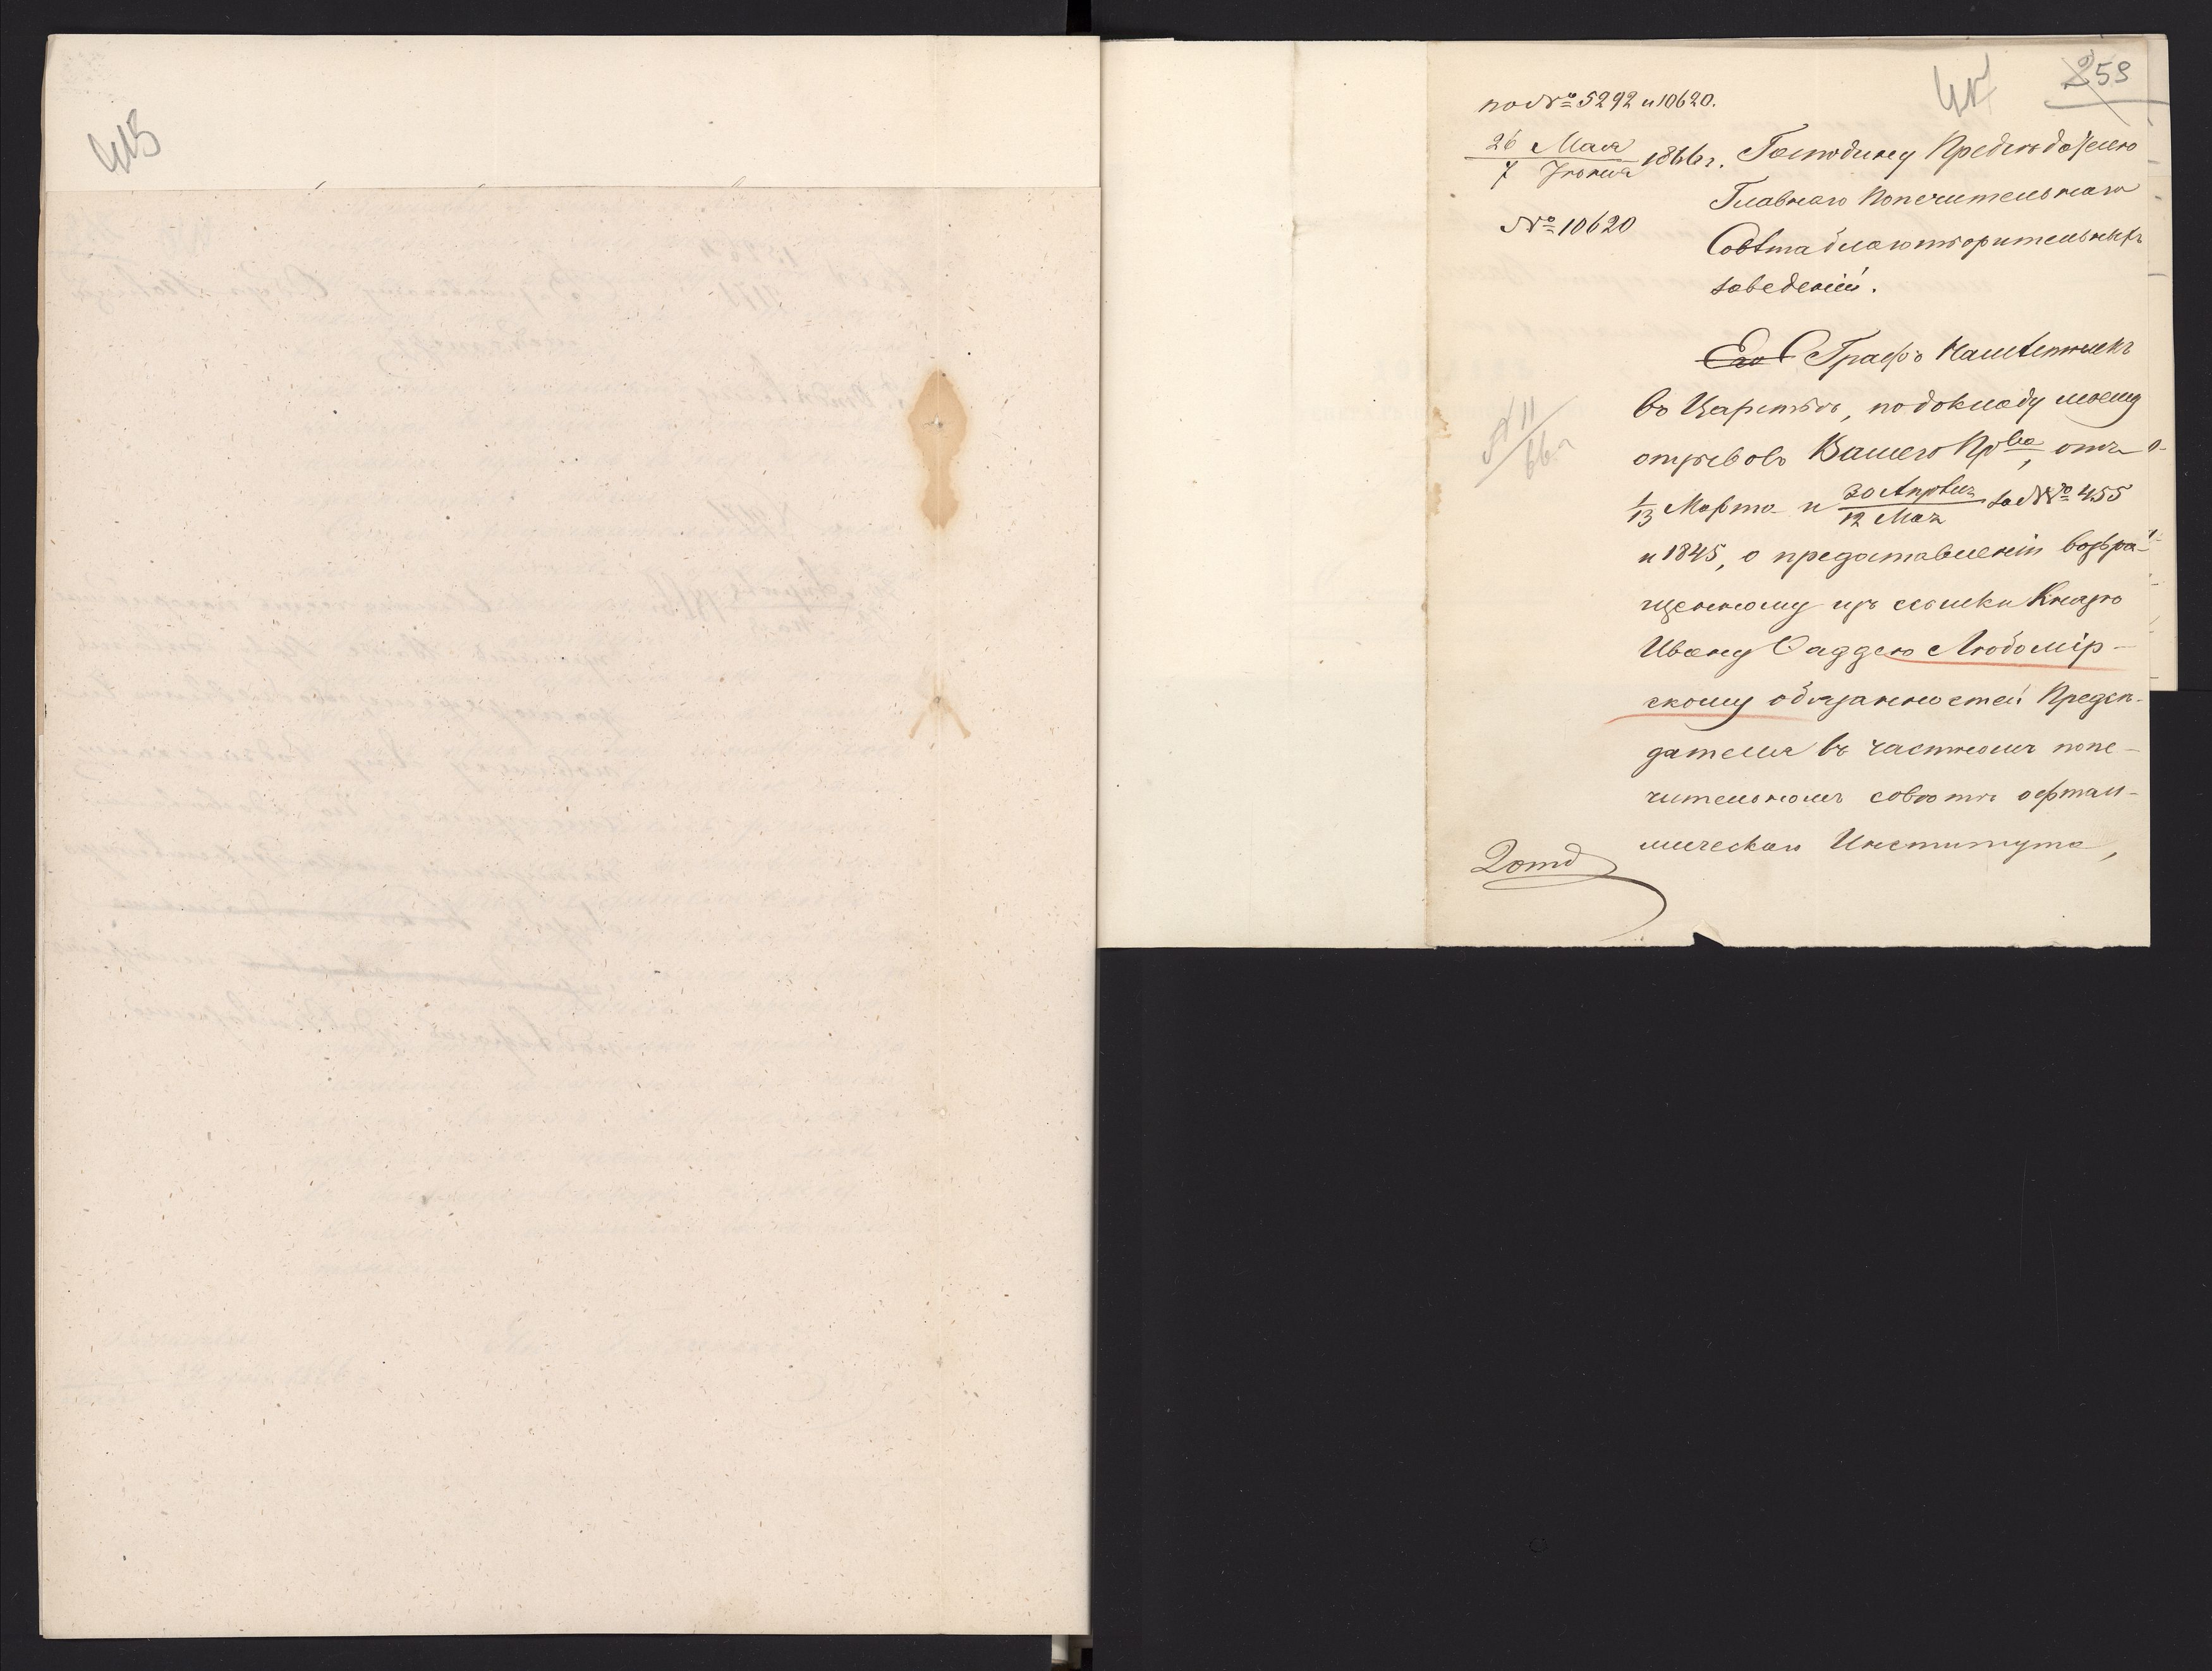 415
259
по № 5292 и 10620.
26 Мая
7 Іюня 1866 г.
№ 10620
Господину Предсѣдателю
Главнаго Попечительнаго
Совѣта благотворительныхъ
заведеній.
Его С Графъ Намѣстникъ
въ Царствѣ, по докладу моему
отзывовъ Вашего Прва, отъ
1/13 Марта и 30 Апрѣля
12 Мая за №№ 455
и 1845, о предоставленіи возвра-
щенному изъ ссылки Князю
Ивану Фаддею Любомір-
скому обязанностей Предсѣ-
дателя въ частномъ попе-
чительномъ совѣтѣ офтал-
мическаго Института,
№ 11
66 г
2 отд